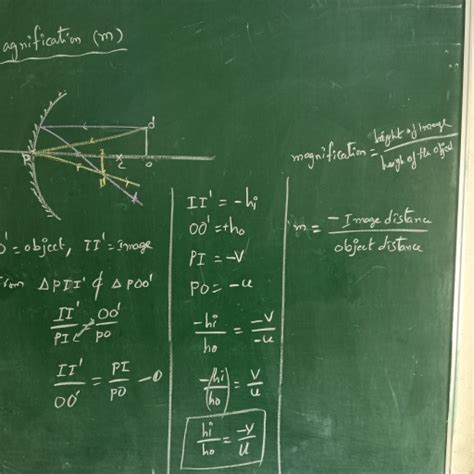 agnification (m)
d
P I C O
O' = object, II' = Image
From Δ PII' & Δ POO'
II' / PI = OO' / PO
II' / OO' = PI / PO - ①
II' = -hi
OO' = +ho
PI = -V
PO = -u
-hi / ho = -V / -u
-(hi / ho) = V / u
hi / ho = -V / u
magnification = height of Image / heigh of the object
m = - Image distance / object distance